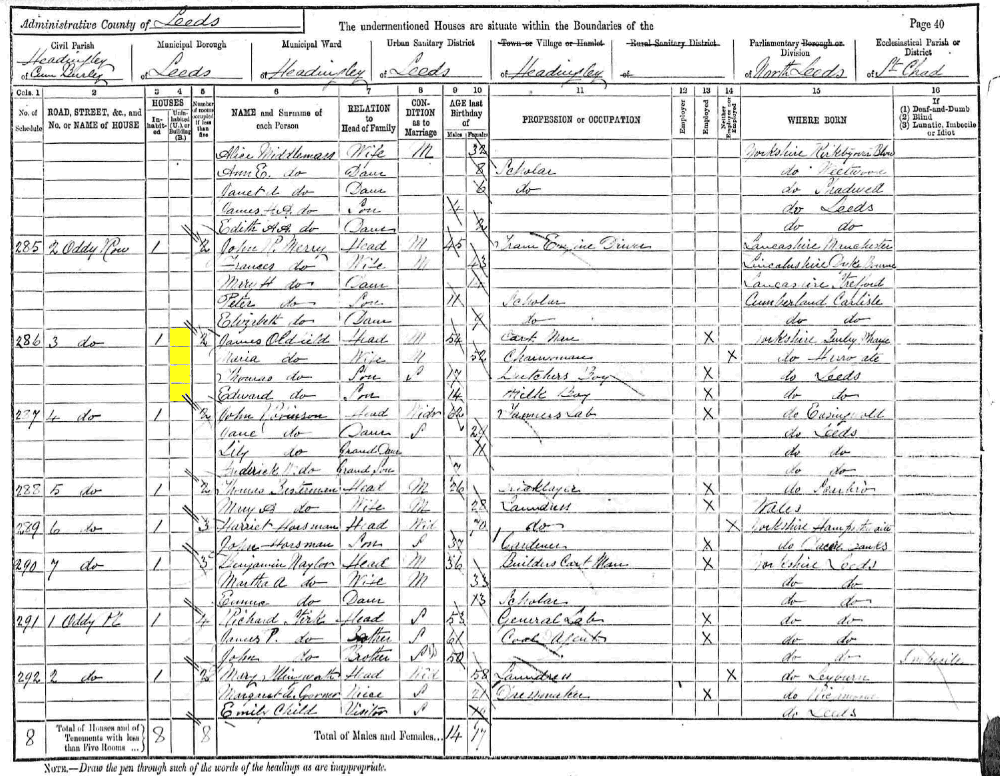 Administrative County of Leeds
The undermentioned Houses are situate within the Boundaries of the
Page 40
Civil Parish
Municipal Borough
Municipal Ward
Urban Sanitary District
Town or Village or Hamlet
Rural Sanitary District
Parliamentary Borough or Division
Ecclesiastical Parish or District
Headingley
of Leeds
of Headingley
of Leeds
of Headingley
of
of North Leeds
of St Chad
Cols. 1 2 3 4 5 6 7 8 9 10 11 12 13 14 15 16
No. of Schedule
ROAD, STREET, &c., and No. or NAME of HOUSE
HOUSES
Inhabited
Uninhabited (U.) or Building (B.)
Number of rooms occupied if less than five
NAME and Surname of each Person
RELATION to Head of Family
CONDITION as to Marriage
AGE last Birthday of
Males
Females
PROFESSION or OCCUPATION
Employer
Employed
Neither Employer nor Employed
WHERE BORN
If
(1) Deaf-and-Dumb
(2) Blind
(3) Lunatic, Imbecile or Idiot
Alice Middlemass Wife M 32 Yorkshire
Ann E. do Daur 8 Scholar do Weetwood
Janet do Daur 6 do do
James H A do Son 4 do Leeds
Edith A A do Daur 2 do do
285 2 Oddy Row 1 2 John R Merry Head M 45 Tram Engine Driver Lancashire Manchester
Frances do Wife M 43 Lincolnshire
Mary H do Daur Lancashire Stretford
Peter do Son 11 Scholar Cumberland Carlisle
Elizabeth do Daur do do do
286 3 do 1 2 James Oldfield Head M 54 Cart Man X Yorkshire
Maria do Wife M 52 Charwoman X do
Thomas do Son S 17 Butchers Boy X do Leeds
Edward do Son 14 Milk Boy X do do
287 4 do 1 2 John Robinson Head Widr 62 Farmers Lab X do Easingwold
Jane do Daur S do Leeds
Lily do Grand Daur 11 do do
Frederick W do Grand Son 7 do do
288 5 do 1 2 Thomas Head M 26 Bricklayer X do
Mary A do Wife M 28 Laundress X Wales
289 6 do 1 3 Harriet Horsman Head Wid 70 do X Yorkshire Hampsthwaite
John Horsman Son S 37 Gardener X do Dacre Banks
290 7 do 1 3 Benjamin Naylor Head M 36 Builders Cart Man X Yorkshire Leeds
Martha A do Wife M 33 do do
Emma do Daur 13 Scholar do do
291 1 Oddy Pl 1 4 Richard Kirk Head S 53 General Lab X do do
James P. do Brother S 61 Coal Agent X do do
John do Brother S 50 do do Imbecile
292 2 do 1 2 Mary Illingworth Head Wid 58 Laundress X do Leyburn
Margaret A Niece S 21 Dressmaker X do Richmond
Emily Child Visitor S do Leeds
8 Total of Houses and of Tenements with less than Five Rooms ... 8 8 Total of Males and Females... 14 17
NOTE.—Draw the pen through such of the words of the headings as are inappropriate.